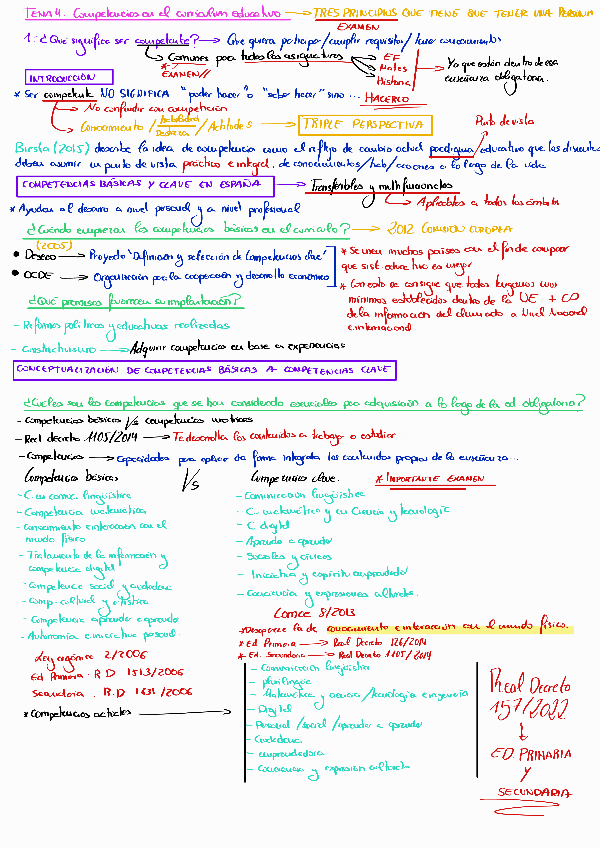 TEMA 4. Competencias en el currículum educativo → TRES PRINCIPIOS QUE TIENE QUE TENER UNA PERSONA
EXAMEN
1: ¿Qué significa ser competente? → Que quiera participar/cumplir requisitos/tener conocimientos
* EXAMEN!!
Comunes para todas las asignaturas → EF
Mates
Historia
Ya que están dentro de esa enseñanza obligatoria.
INTRODUCCIÓN
* Ser competente NO SIGNIFICA "poder hacer" o "saber hacer" sino... HACERLO
→ No confundir con competición
→ Conocimiento / habilidades / Actitudes → TRIPLE PERSPECTIVA
Destrezas
Punto de vista
(2015) describe la idea de competencia como el reflejo de cambio actual paradigma/educativo que los
deben asumir un punto de vista práctico e integral, de conocimientos/hab/ a lo largo de la vida
COMPETENCIAS BÁSICAS Y CLAVE EN ESPAÑA → Transferibles y multifuncionales
→ Aplicables a todos los ámbitos
* Ayudan al desarro a nivel personal y a nivel profesional
¿Cuándo empiezan las competencias básicas en el currículo? → 2012 COMISIÓN EUROPEA
(2005)
• Deseco → Proyecto "Definición y selección de Competencias clave"
• OCDE → Organización para la cooperación y desarrollo económico
* Se unen muchos países con el fin de comparar
que sist. educativo es mejor
* Con esto se consigue que todos tengamos unos
mínimos establecidos dentro de la UE + CD
de la información del alumnado a Nivel Nacional
e internacional
¿Qué premisas favorecen su implantación?
- Reformas políticas y educativas realizadas
- Constructivismo → Adquirir competencias en base a experiencias
CONCEPTUALIZACIÓN DE COMPETENCIAS BÁSICAS A COMPETENCIAS CLAVE
¿Cuáles son las competencias que se han considerado esenciales para adquisición a lo largo de la ed. obligatoria?
- Competencias básicas V/s competencias
- Real decreto 1105/2014 → Te desarrolla los contenidos a trabajar o estudiar
- Competencias → Capacidades para aplicar de forma integrada los contenidos propios de la enseñanza...
Competencias básicas V/s Competencias clave. * IMPORTANTE EXAMEN
- C. en comu. lingüística
- Competencia matemática
- Conocimiento e interacción con el
mundo físico
- Tratamiento de la información y
competencia digital
- Competencia social y ciudadana
- Comp. cultural y artística
- Competencia aprender a aprender
- Autonomía e iniciativa personal
- Comunicación lingüística
- C. matemática y en Ciencia y tecnología
- C. digital
- Aprender a aprender
- Sociales y cívicas
- Iniciativa y espíritu emprendedor
- Conciencia y expresiones culturales.
Lomce 8/2013
* Desaparece la de conocimiento e interacción con el mundo físico.
* Ed. Primaria → Real Decreto 126/2014
* Ed. Secundaria → Real Decreto 1105/2014
Ley orgánica 2/2006
Ed Primaria: R.D 1513/2006
Secundaria. R.D 1631/2006
* Competencias actuales →
- Comunicación lingüística
- plurilingüe
- Matemática y ciencia/tecnología e ingeniería
- Digital
- Personal/social/aprender a aprender
- Ciudadana
- emprendedora
- Conciencia y expresión culturales
Real Decreto
157/2022
↓
ED. PRIMARIA
Y
SECUNDARIA